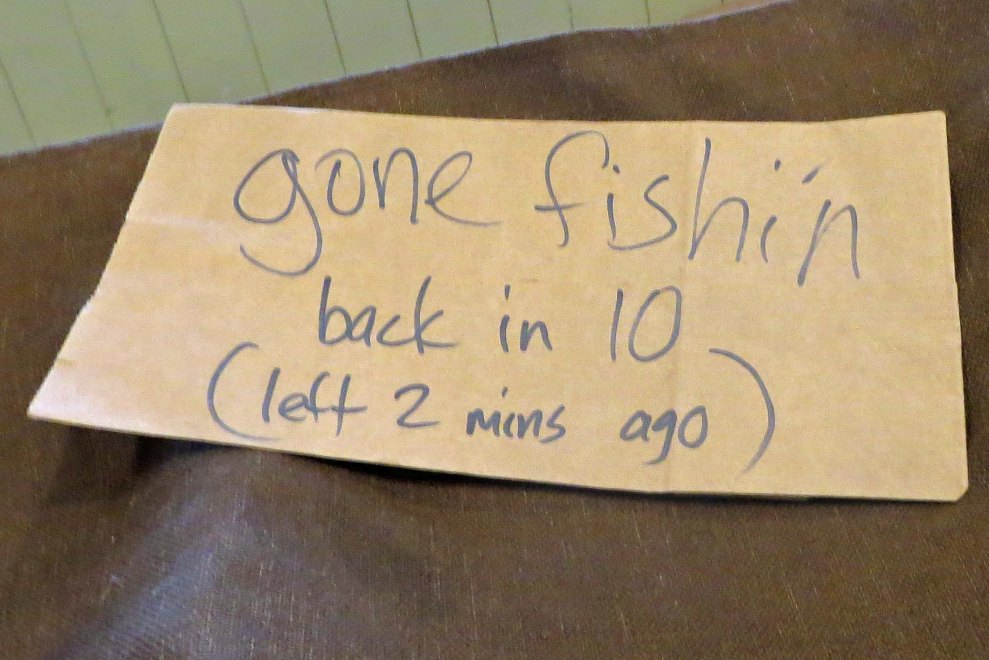 gone fishi'n
back in 10
(left 2 mins ago)